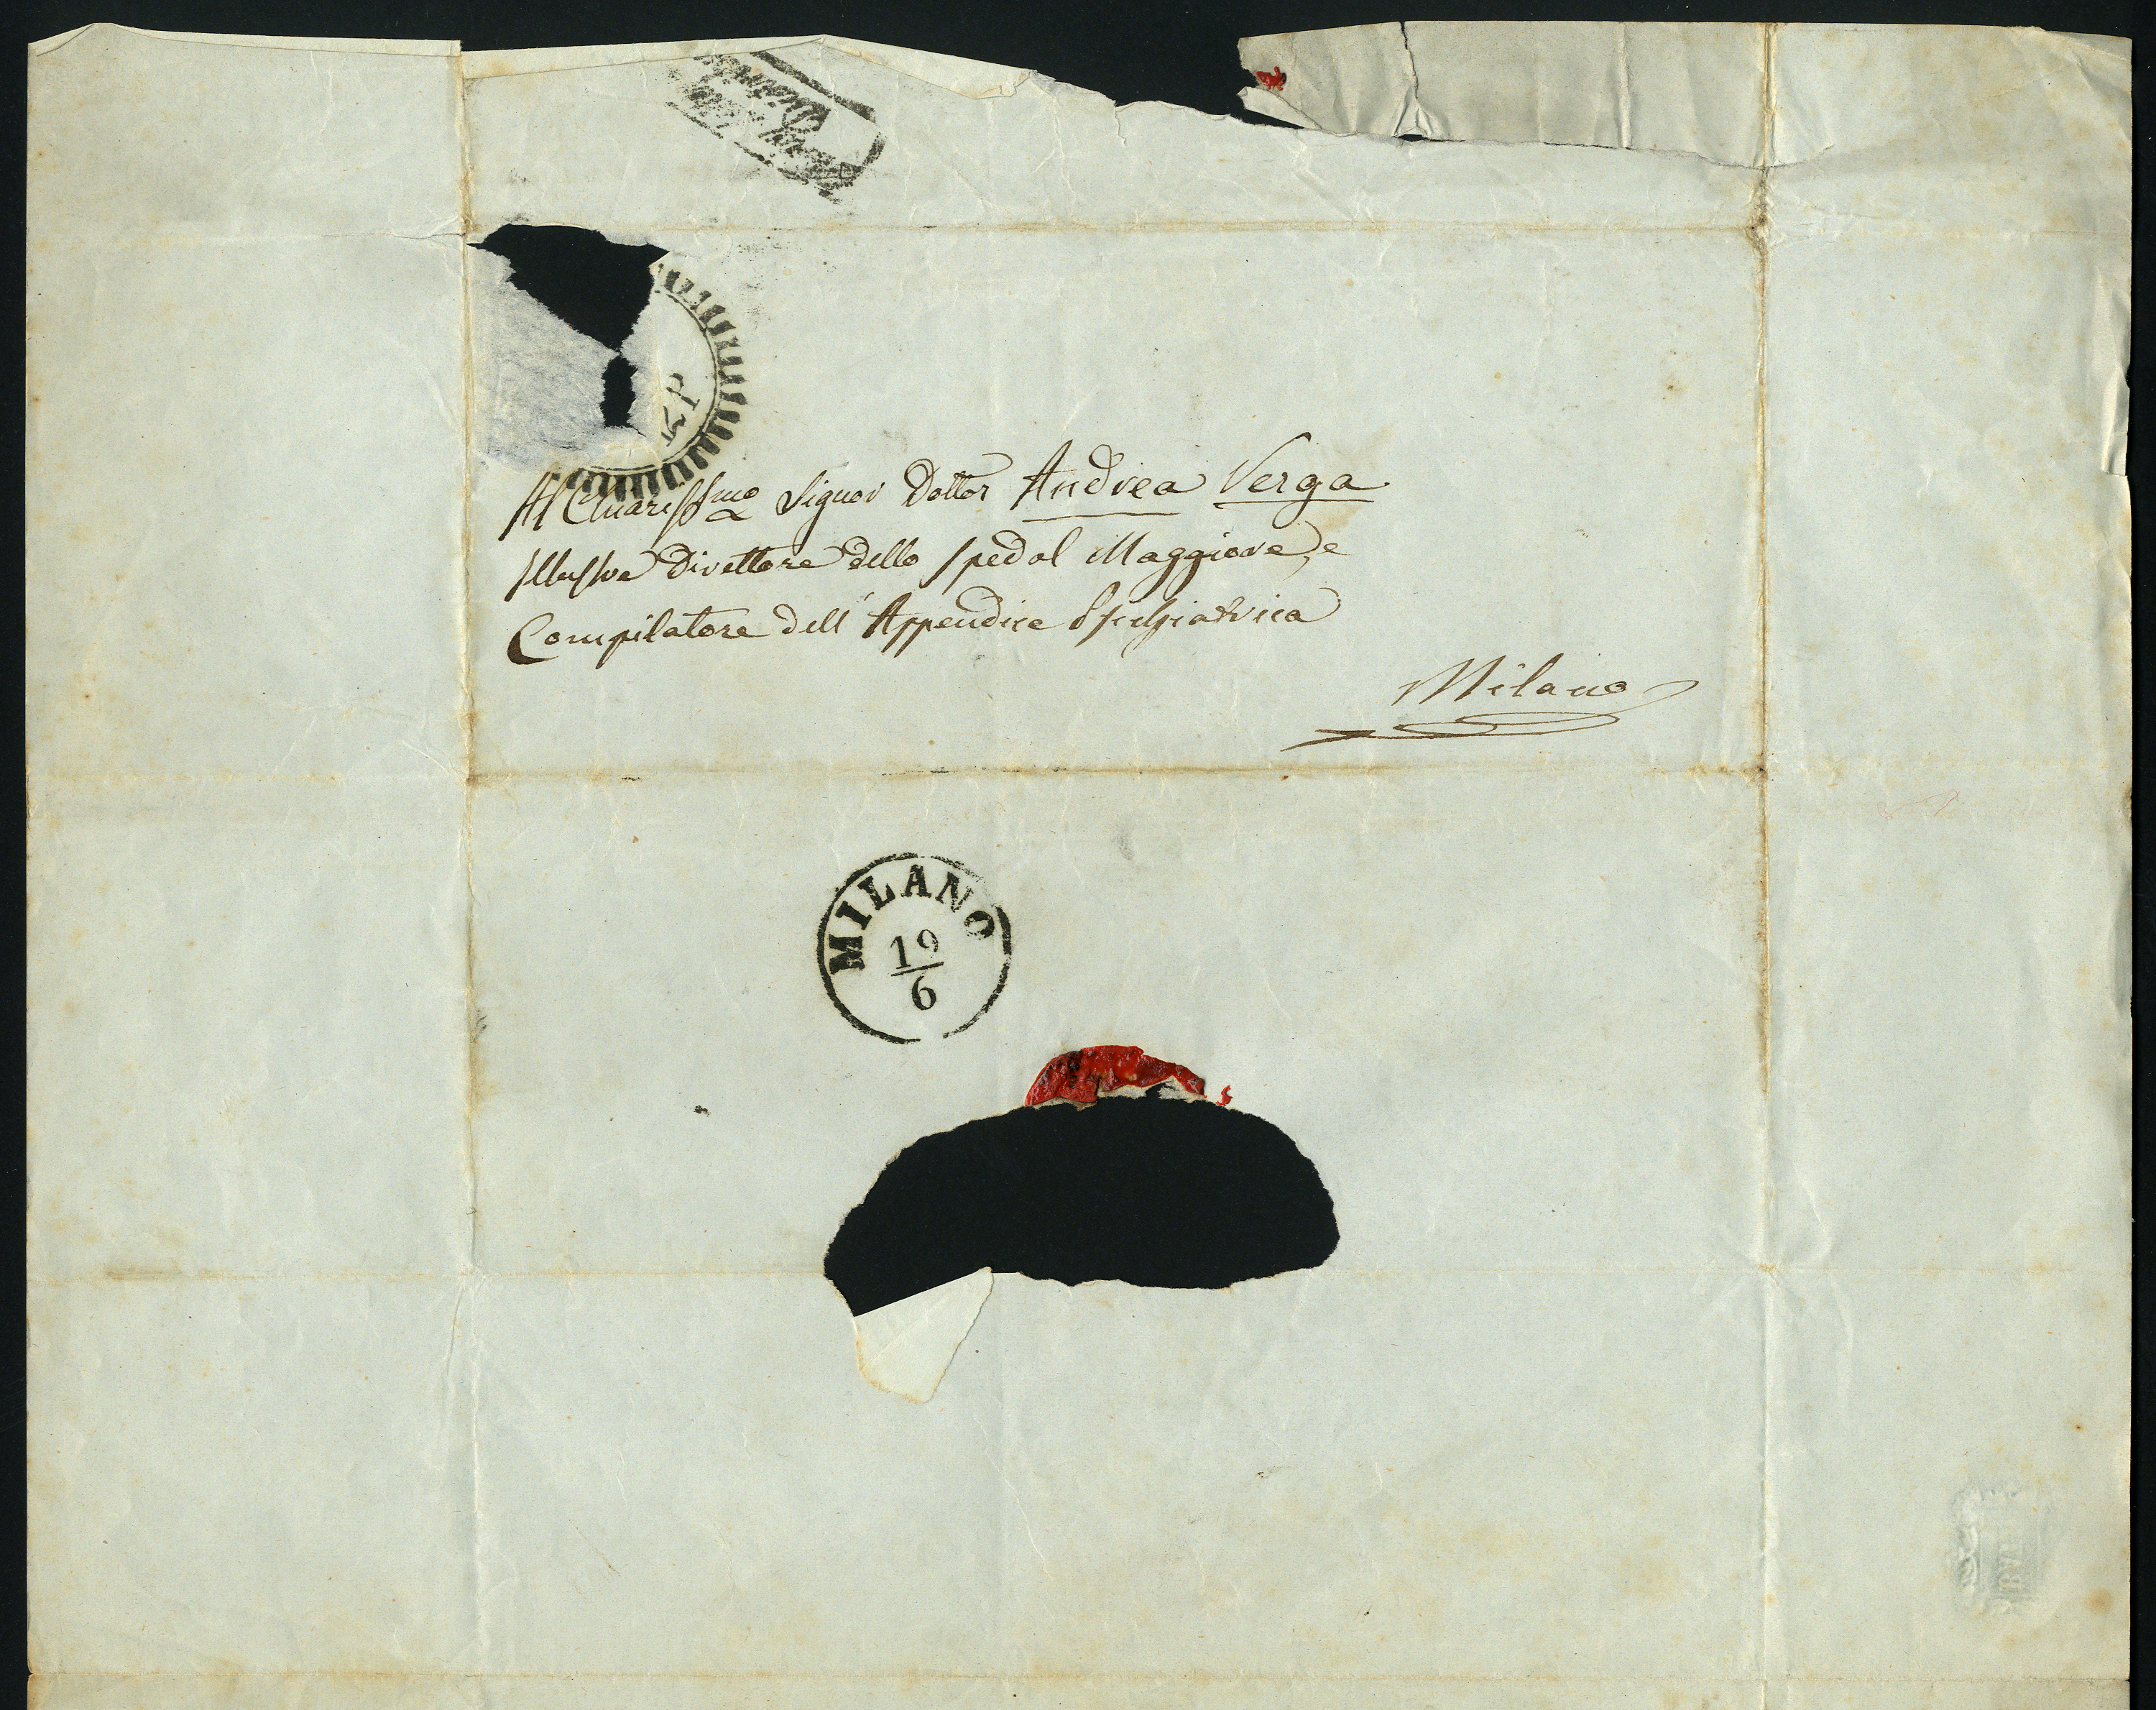 Al Chiarissimo Signor Dottor Andrea Verga
Illustre Direttore dello Spedal Maggiore, e
Compilatore dell' Appendice Psichiatrica
Milano
MILANO
19
6